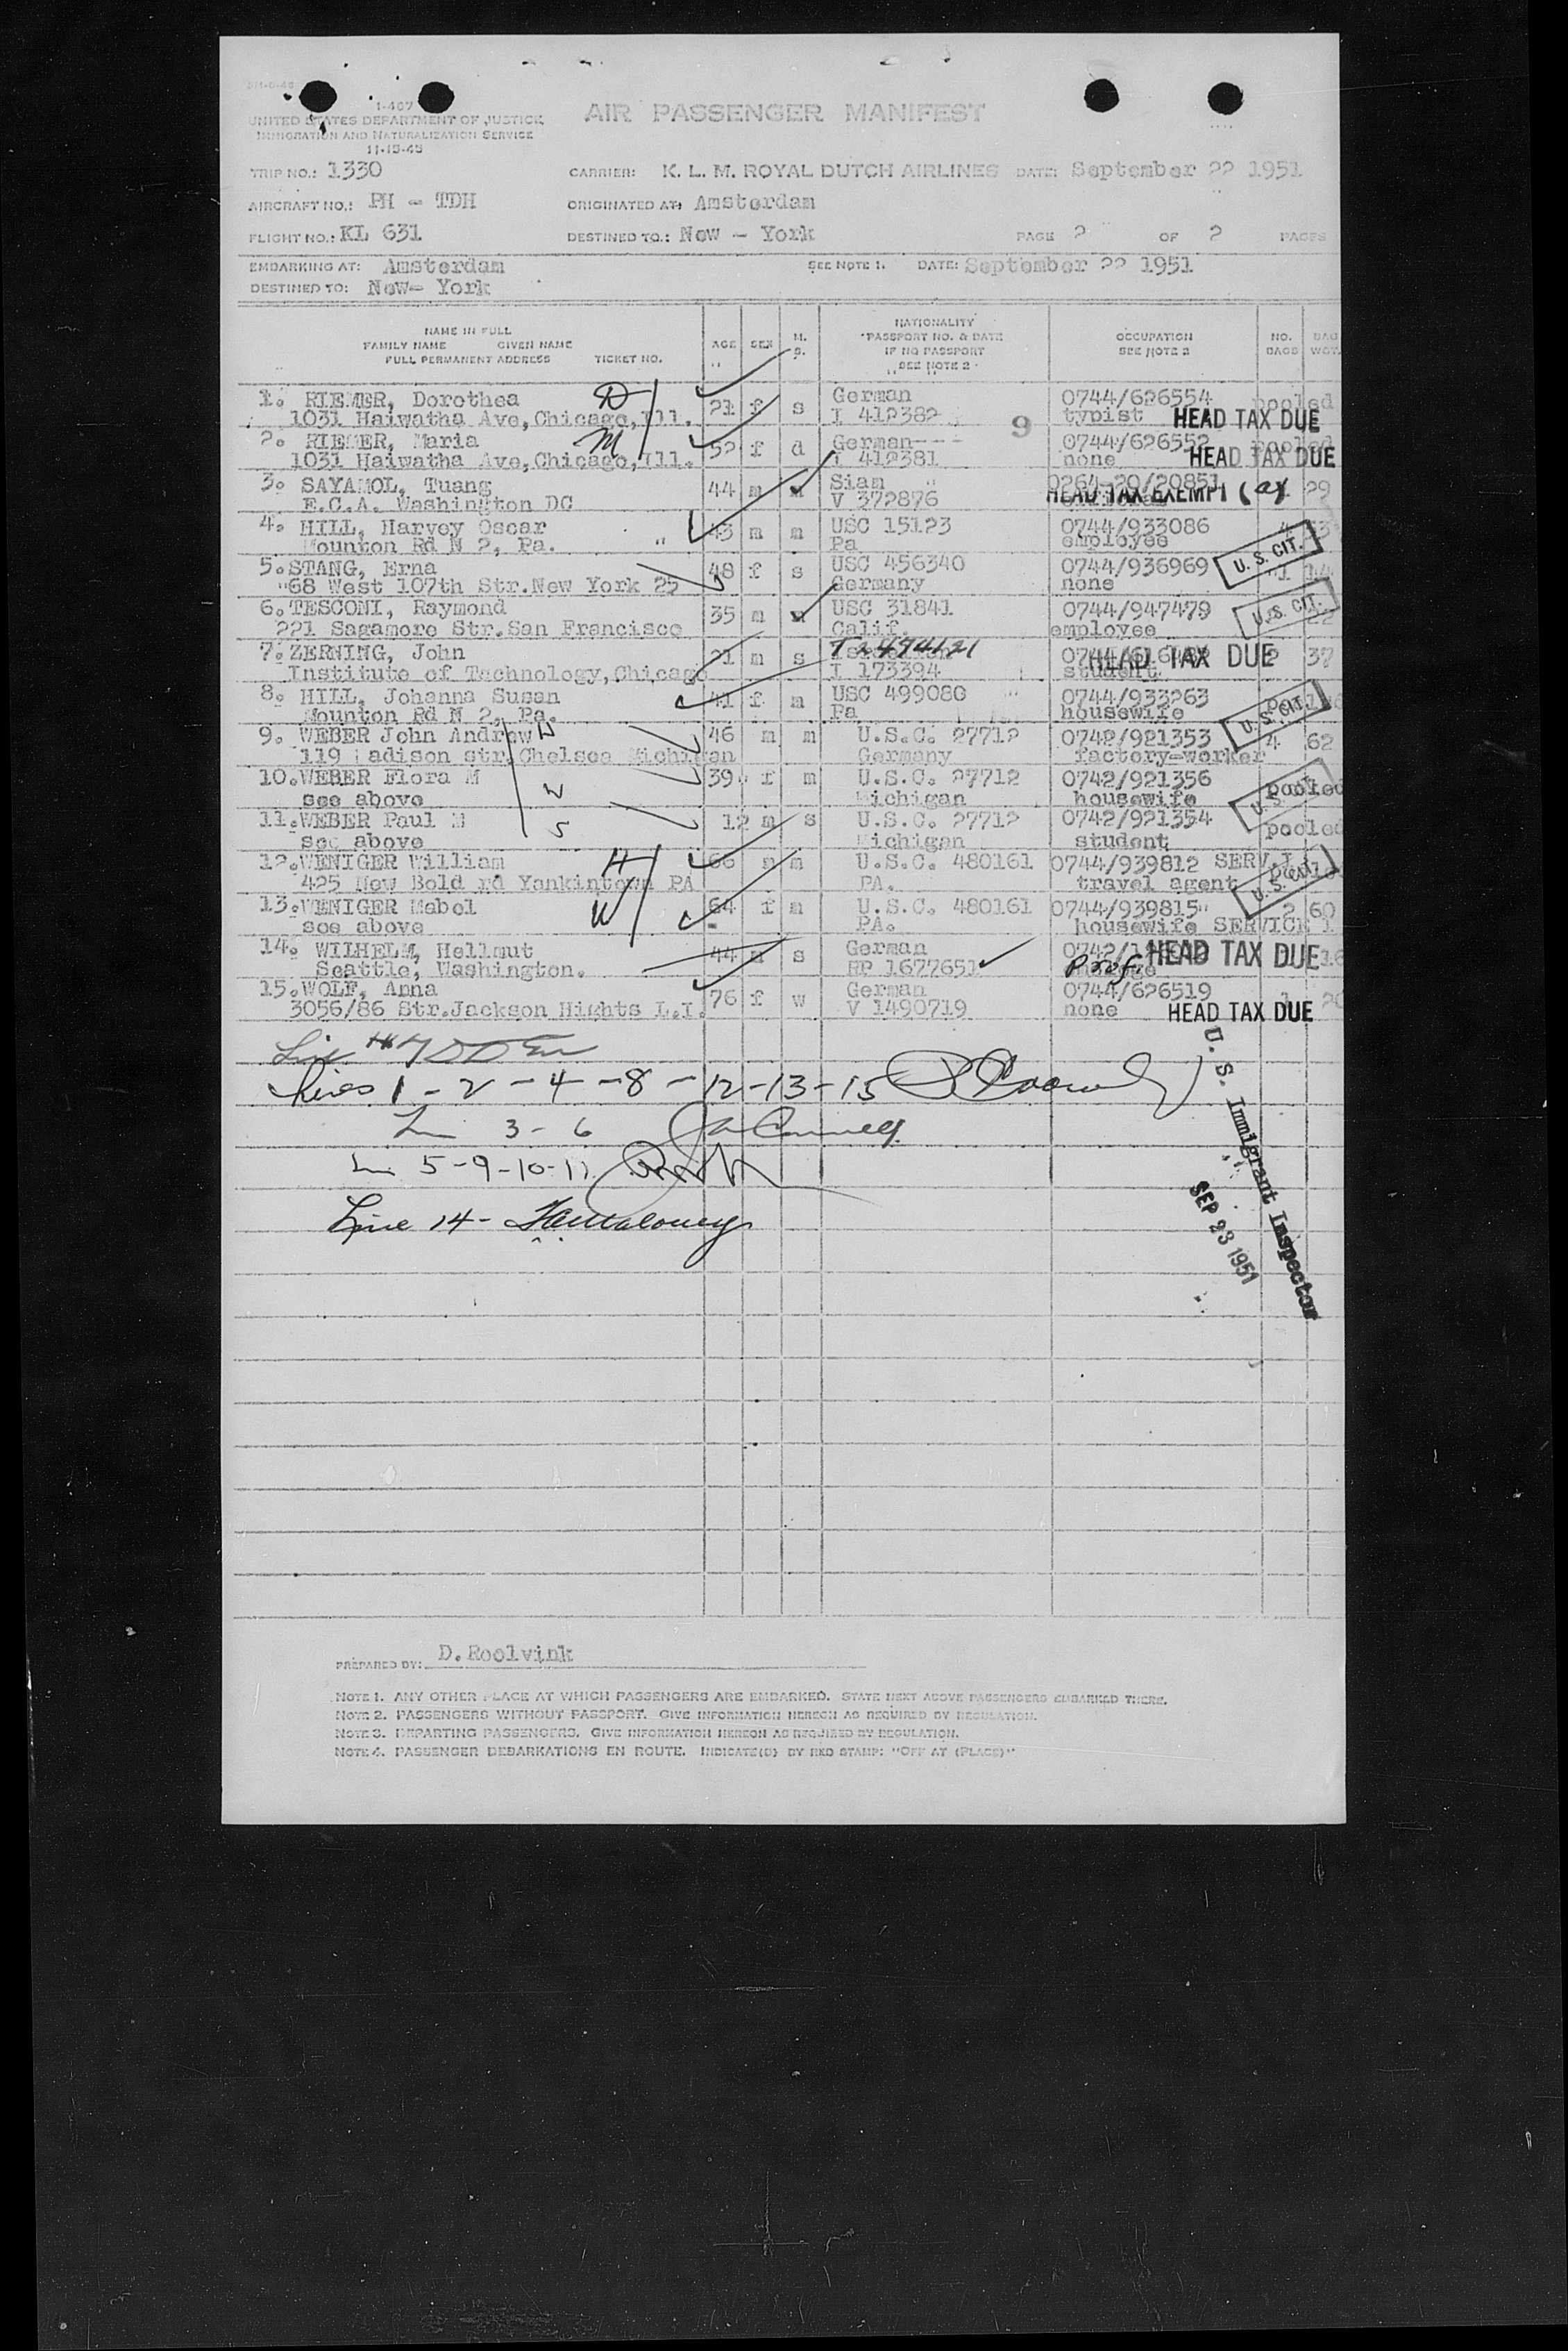 1-467
UNITED STATES DEPARTMENT OF JUSTICE
IMMIGRATION AND NATURALIZATION SERVICE
11-15-45
AIR PASSENGER MANIFEST
TRIP NO.: 1330 CARRIER: K. L. M. ROYAL DUTCH AIRLINES DATE: September 22 1951
AIRCRAFT NO.: PH - TDH ORIGINATED AT: Amsterdam
FLIGHT NO.: KL 631 DESTINED TO.: New - York PAGE 2 OF 2 PAGES
EMBARKING AT: Amsterdam SEE NOTE 1. DATE: September 22 1951
DESTINED TO: New- York
NAME IN FULL
FAMILY NAME GIVEN NAME
FULL PERMANENT ADDRESS TICKET NO.
AGE SEX M. S.
NATIONALITY
PASSPORT NO. & DATE
IF NO PASSPORT
SEE NOTE 2
OCCUPATION
SEE NOTE 2
NO. BAGS BAG WGT.
1. RIEMER, Dorothea D 21 f s German 0744/626554 pooled
1031 Haiwatha Ave, Chicago, Ill. I 412382 9 typist HEAD TAX DUE
2. RIEMER, Maria M 52 f d German--- 0744/626552 pooled
1031 Haiwatha Ave, Chicago, Ill. I 412381 none HEAD TAX DUE
3. SAYAMOL, Tuang 44 m Siam 0264-20/20851
E.C.A. Washington DC V 372876 HEAD TAX EXEMPT 29
4. HILL, Harvey Oscar 43 m m USC 15123 0744/933086 4
Mounton Rd N 2, Pa. Pa employee U. S. CIT.
5. STANG, Erna 48 f s USC 456340 0744/936969 1 14
68 West 107th Str. New York 25 Germany none
6. TESCONI, Raymond 35 m USC 31841 0744/947479 U. S. CIT.
221 Sagamore Str. San Francisco Calif. employee
7. ZERNING, John 21 m s T2474121 HEAD TAX DUE 2 37
Institute of Technology, Chicago I 173394 student
8. HILL, Johanna Susan 41 f m USC 499080 0744/933263
Mounton Rd N 2, Pa. Pa housewife U. S. CIT.
9. WEBER John Andrew 46 m m U.S.C. 27712 0742/921353 4 62
119 Madison str. Chelsea Michigan Germany factory-worker
10. WEBER Flora M W 39 f m U.S.C. 27712 0742/921356 pooled
see above Michigan housewife U. S. CIT.
11. WEBER Paul M S 12 m s U.S.C. 27712 0742/921354 pooled
see above Michigan student
12. WENIGER William H 66 m m U.S.C. 480161 0744/939812
425 New Bold rd Yankintown PA PA. travel agent U. S. CIT.
13. WENIGER Mabel W 64 f m U.S.C. 480161 0744/939815 2 60
see above PA. housewife SERVICE 1
14. WILHELM, Hellmut 44 m s German HEAD TAX DUE
Seattle, Washington. RP 1677651 Prof.
15. WOLF, Anna 76 f w German 0744/626519 1 20
3056/86 Str. Jackson Hights L.I. V 1490719 none HEAD TAX DUE
Line #7
Lines 1 - 2 - 4 - 8 - 12 - 13 - 15
3 - 6
5-9-10-11
Line 14 -
U. S. Immigrant Inspector
SEP 23 1951
PREPARED BY: D. Roolvink
NOTE 1. ANY OTHER PLACE AT WHICH PASSENGERS ARE EMBARKED. STATE NEXT ABOVE PASSENGERS EMBARKED THERE.
NOTE 2. PASSENGERS WITHOUT PASSPORT. GIVE INFORMATION HEREON AS REQUIRED BY REGULATION.
NOTE 3. DEPARTING PASSENGERS. GIVE INFORMATION HEREON AS REQUIRED BY REGULATION.
NOTE 4. PASSENGER DEBARKATIONS EN ROUTE. INDICATE(D) BY RED STAMP: "OFF AT (PLACE)"